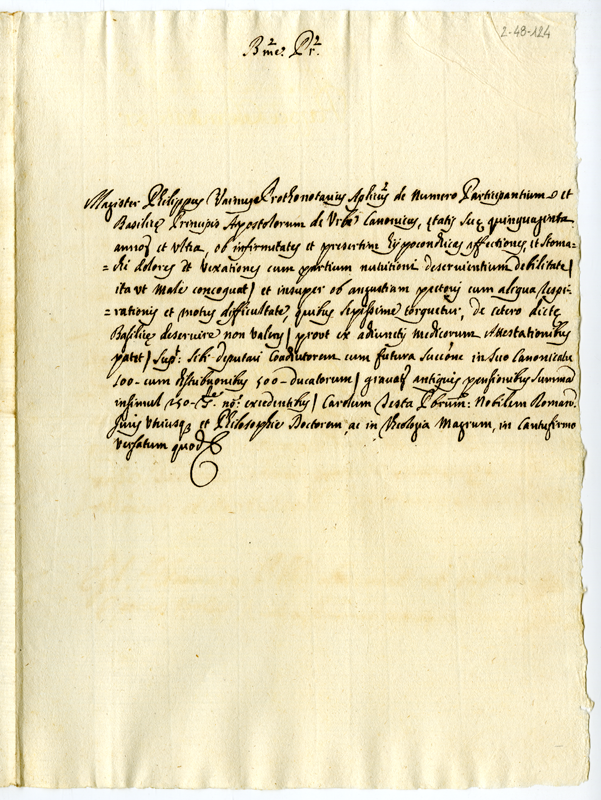 2-48-124
Bme. Pr.
Magister Philippus Prothonotarius Aplicus de numero Participantium et
Basilicę Principis Apostolorum de Urbe Canonicus, ętatis suę quinquaginta
annorũ et ultra, ob infirmitates et presertim hÿppocondricas affectiones, et stoma=
=chi dolores et vexationes cum partium nutritioni deservientium debilitate/
ita ut male concoquat/ et insuper ob angustiam pectoris cum aliqua respi=
=rationis et motus difficultate, quibus sępissime torquetur, de cetero dictę
Basilicę deservire non valens/ prout ex adiunctis medicorum Attestationibus
patet/ Supt: sibi deputari Coadiutorem cum futura succne in suo Canonicatu
100-cum distributionibus 500-ducatorum/ gravat antiquis pensionibus summã
insimul 250- non excedentibus/ Carolum Pbrum: Nobilem Romanũ.
Juris Utriusq et Philosophię Doctorem, ac in Theologia Magrum, in Cantufirmo
versatum quod